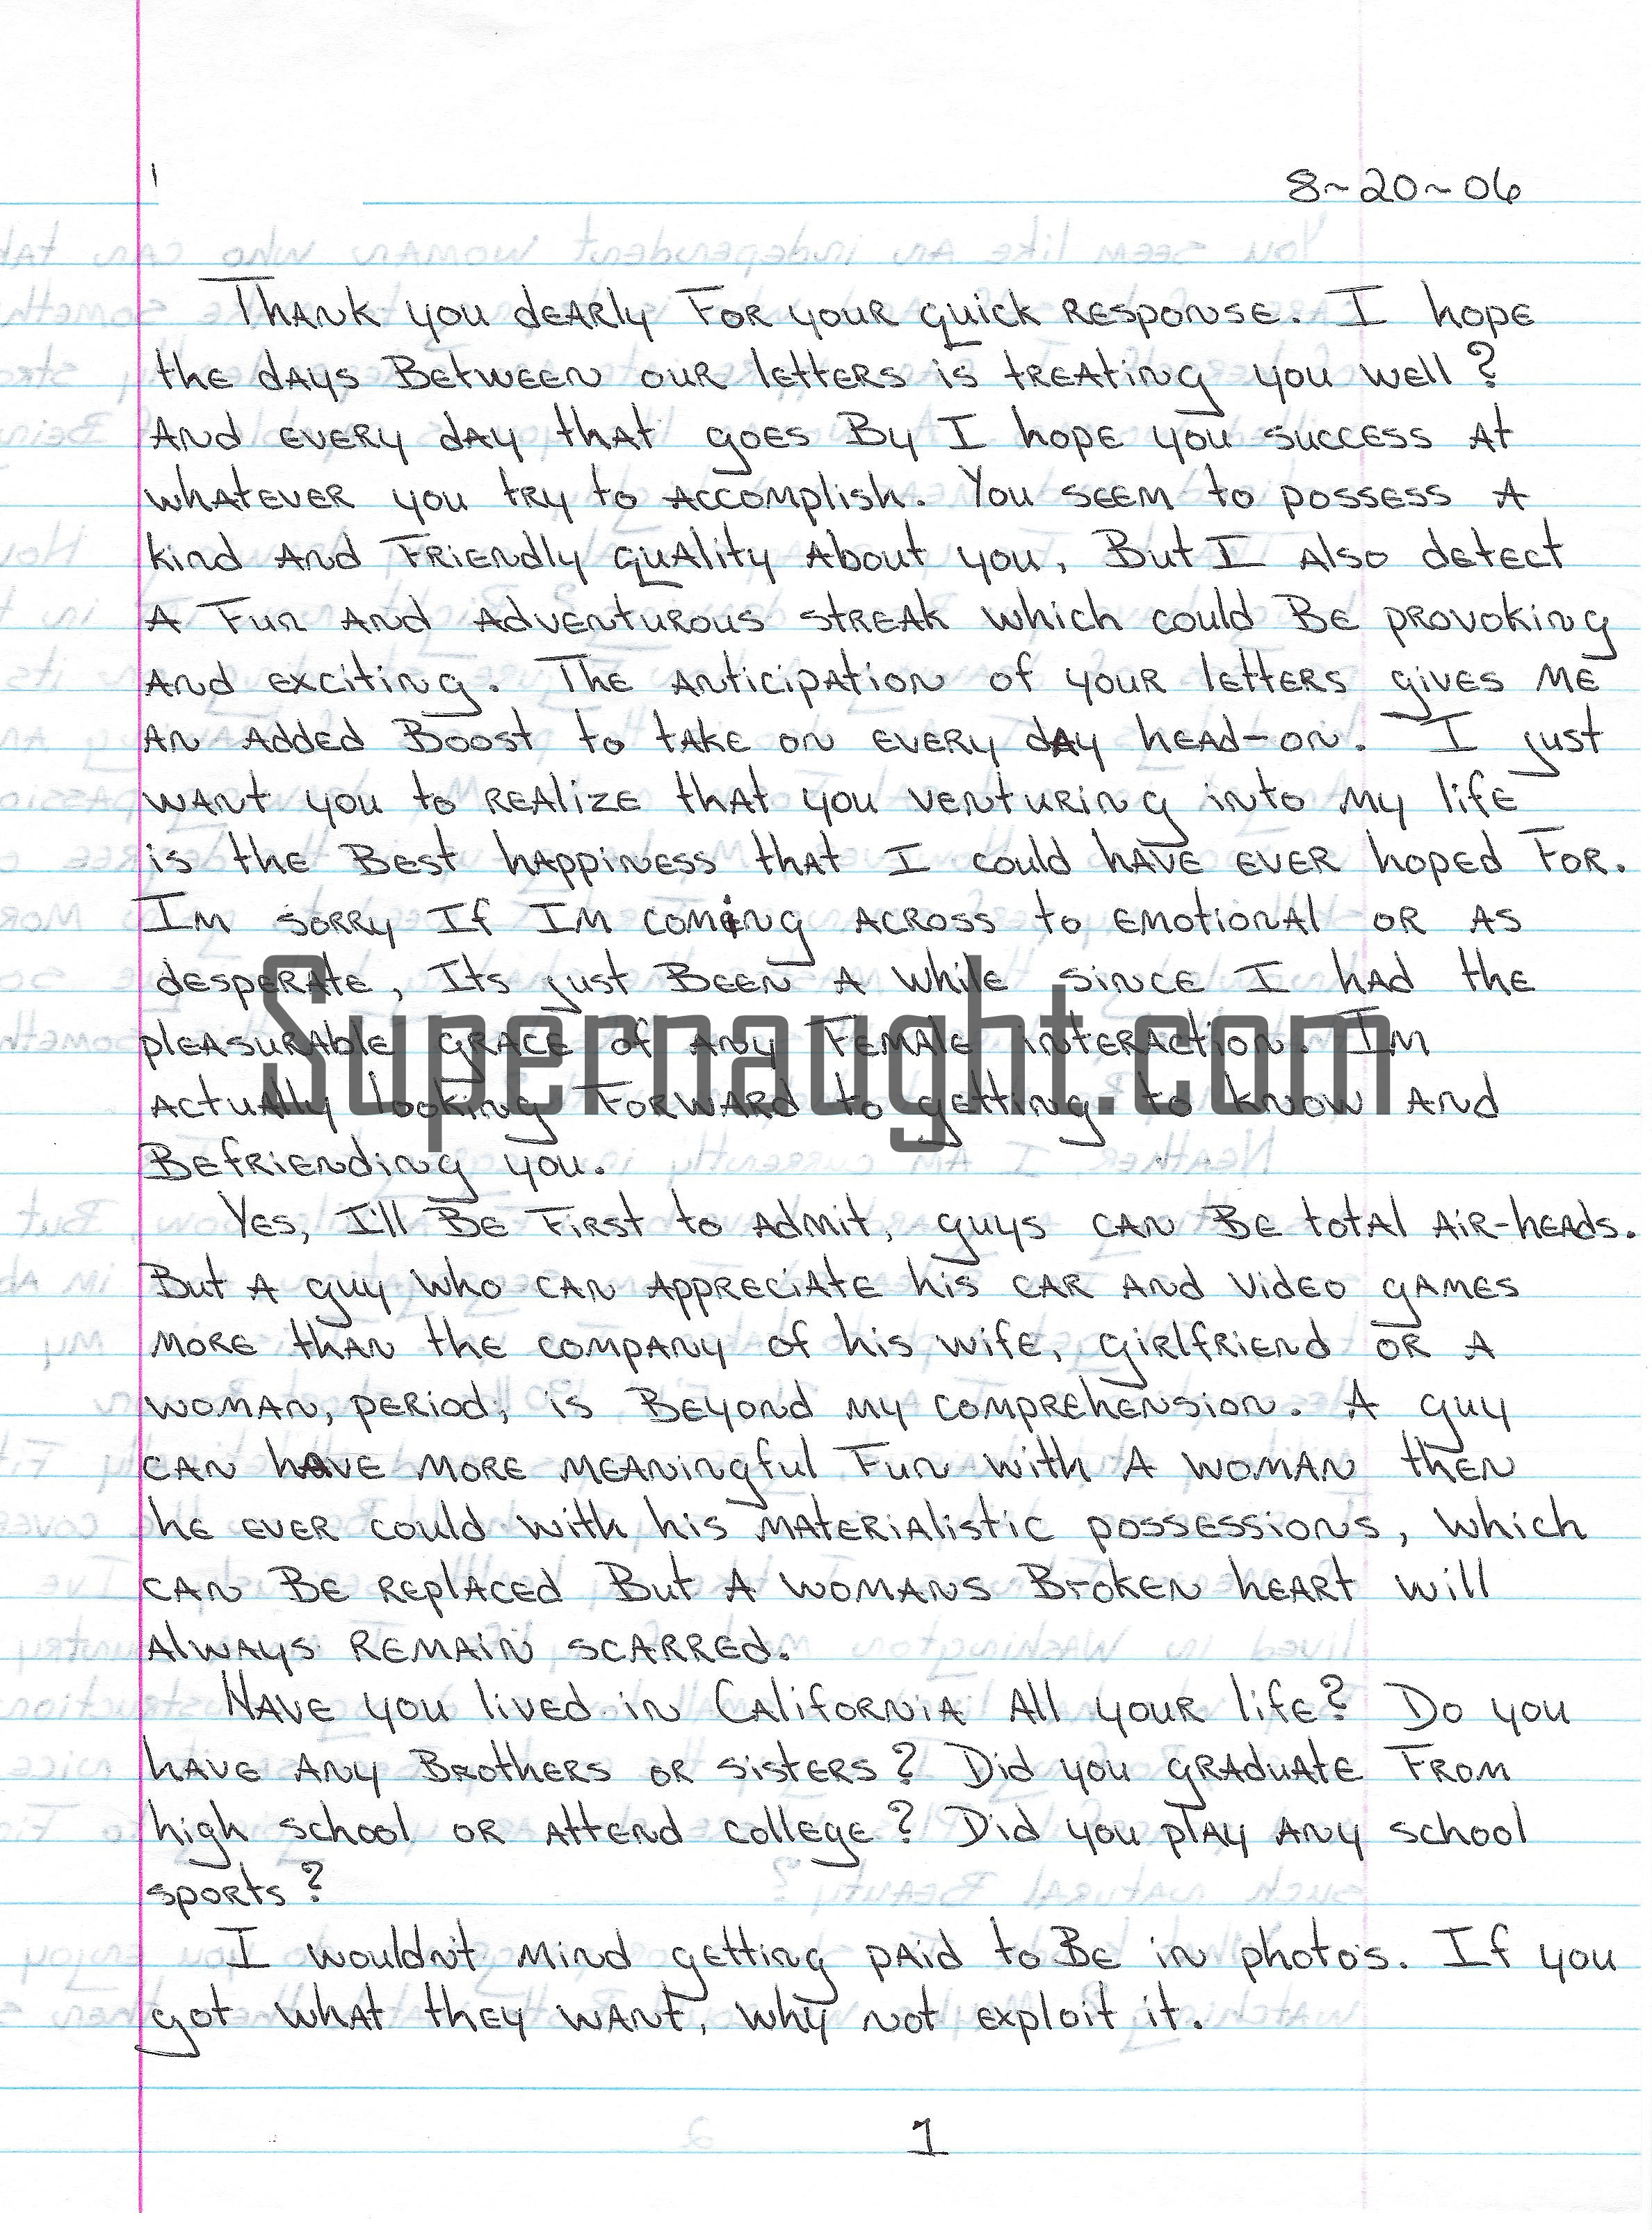 8~20~06
Thank you dearly For your quick response. I hope
the days Between our letters is treating you well?
And every day that goes By I hope you success at
whatever you try to accomplish. You seem to possess a
kind and Friendly quality about you, But I also detect
a Fun and adventurous streak which could Be provoking
and exciting. The anticipation of your letters gives me
an added Boost to take on every day head-on. I just
want you to realize that you venturing into my life
is the Best happiness that I could have ever hoped For.
Im sorry If Im coming across to emotional or as
desperate, Its just Been a while since I had the
pleasurable grace of any Female interaction. Im
actually looking Forward to getting to know and
Befriending you.
Supernaught.com
Yes, I'll Be First to admit, guys can Be total air-heads.
But a guy who can appreciate his car and video games
more than the company of his wife, girlfriend or a
woman, period, is Beyond my comprehension. A guy
can have more meaningful Fun with a woman then
he ever could with his materialistic possessions, which
can Be replaced But a womans Broken heart will
always remain scarred.
Have you lived in California all your life? Do you
have any Brothers or sisters? Did you graduate From
high school or attend college? Did you play any school
sports?
I wouldn't mind getting paid to Be in photo's. If you
got what they want, why not exploit it.
1